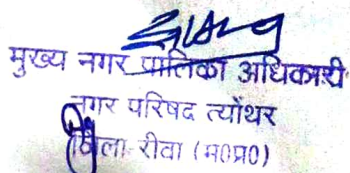 मुख्य नगर पालिका अधिकारी
नगर परिषद त्योंथर
जिला रीवा (म०प्र०)